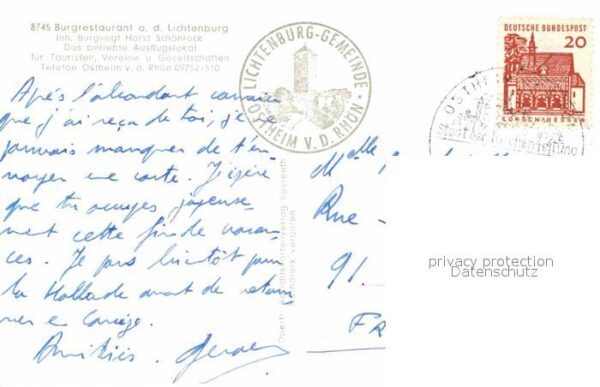 8745 Burgrestaurant a. d. Lichtenburg
Inh. Burgvogt Horst Schönrock
Das beliebte Ausflugslokal
für Touristen, Vereine u. Gesellschaften
Telefon Ostheim v. d. Rhön 09752-510
LICHTENBURG-GEMEINDE
OSTHEIM V. D. RHÖN
DEUTSCHE BUNDESPOST
20
LORSCH/HESSEN
OSTHEIM
Après l'abondant courrier
que j'ai reçu de toi, je ne
pouvais manquer de t'en
voyer une carte. J'espère
que tu occupes joyeuse
ment cette fin de vacan
ces. Je pars bientôt pour
la Hollande avant de retour
ner en
Amitiés.
Melle
Rue
91.
FRA
privacy protection
Datenschutz